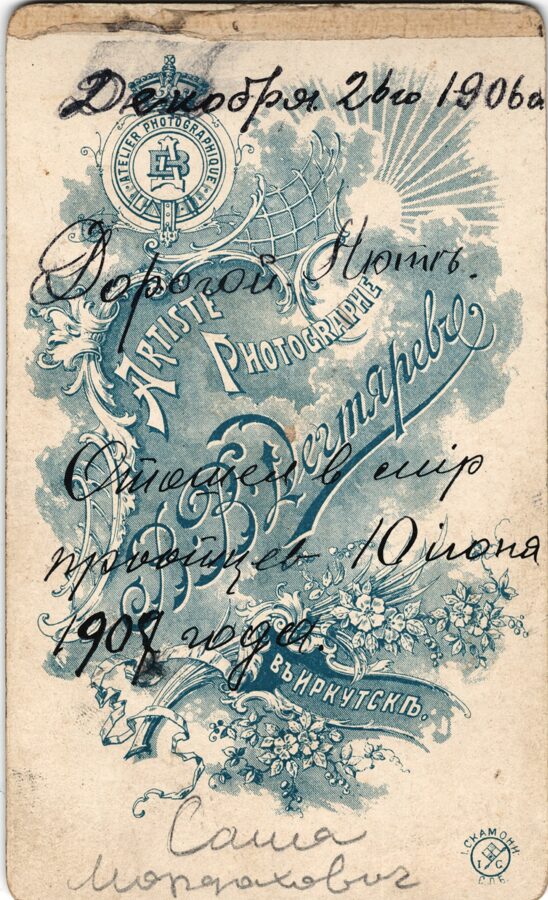 Декабря 26го 1906го
ATELIER PHOTOGRAPHIQUE
Дорогой Нютѣ.
ARTISTE
PHOTOGRAPHE
В. В. Дегтяревъ
Отошел в мір
10 июня
1907 года.
ВЪ ИРКУТСКѢ.
Саша
Мордахович
І. СКАМОНИ
I G
С.П.Б.